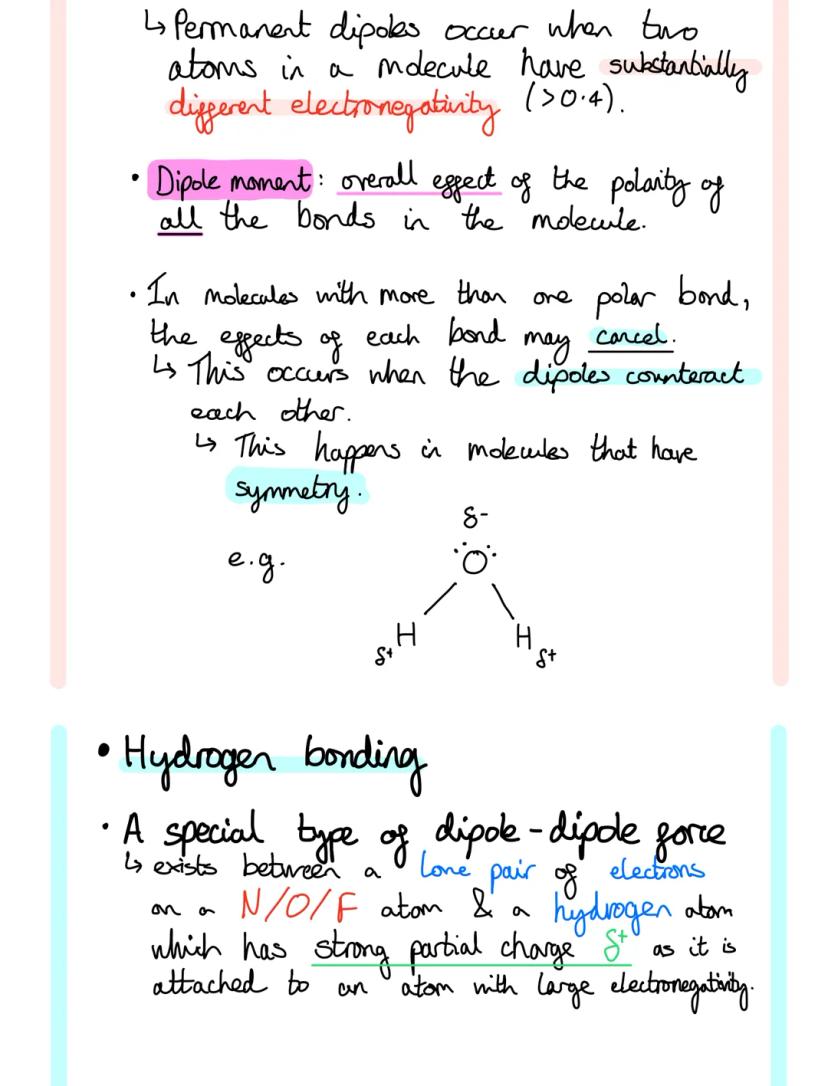 ↳ Permanent dipoles occur when two
atoms in a molecule have substantially
different electronegativity (>0.4).
• Dipole moment: overall effect of the polarity of
all the bonds in the molecule.
• In molecules with more than one polar bond,
the effects of each bond may cancel.
↳ This occurs when the dipoles counteract
each other.
↳ This happens in molecules that have
symmetry.
δ-
e.g. O
H H
δ+ δ+
• Hydrogen bonding
• A special type of dipole-dipole force
↳ exists between a lone pair of electrons
on a N/O/F atom & a hydrogen atom
which has strong partial charge δ+ as it is
attached to an atom with large electronegativity.